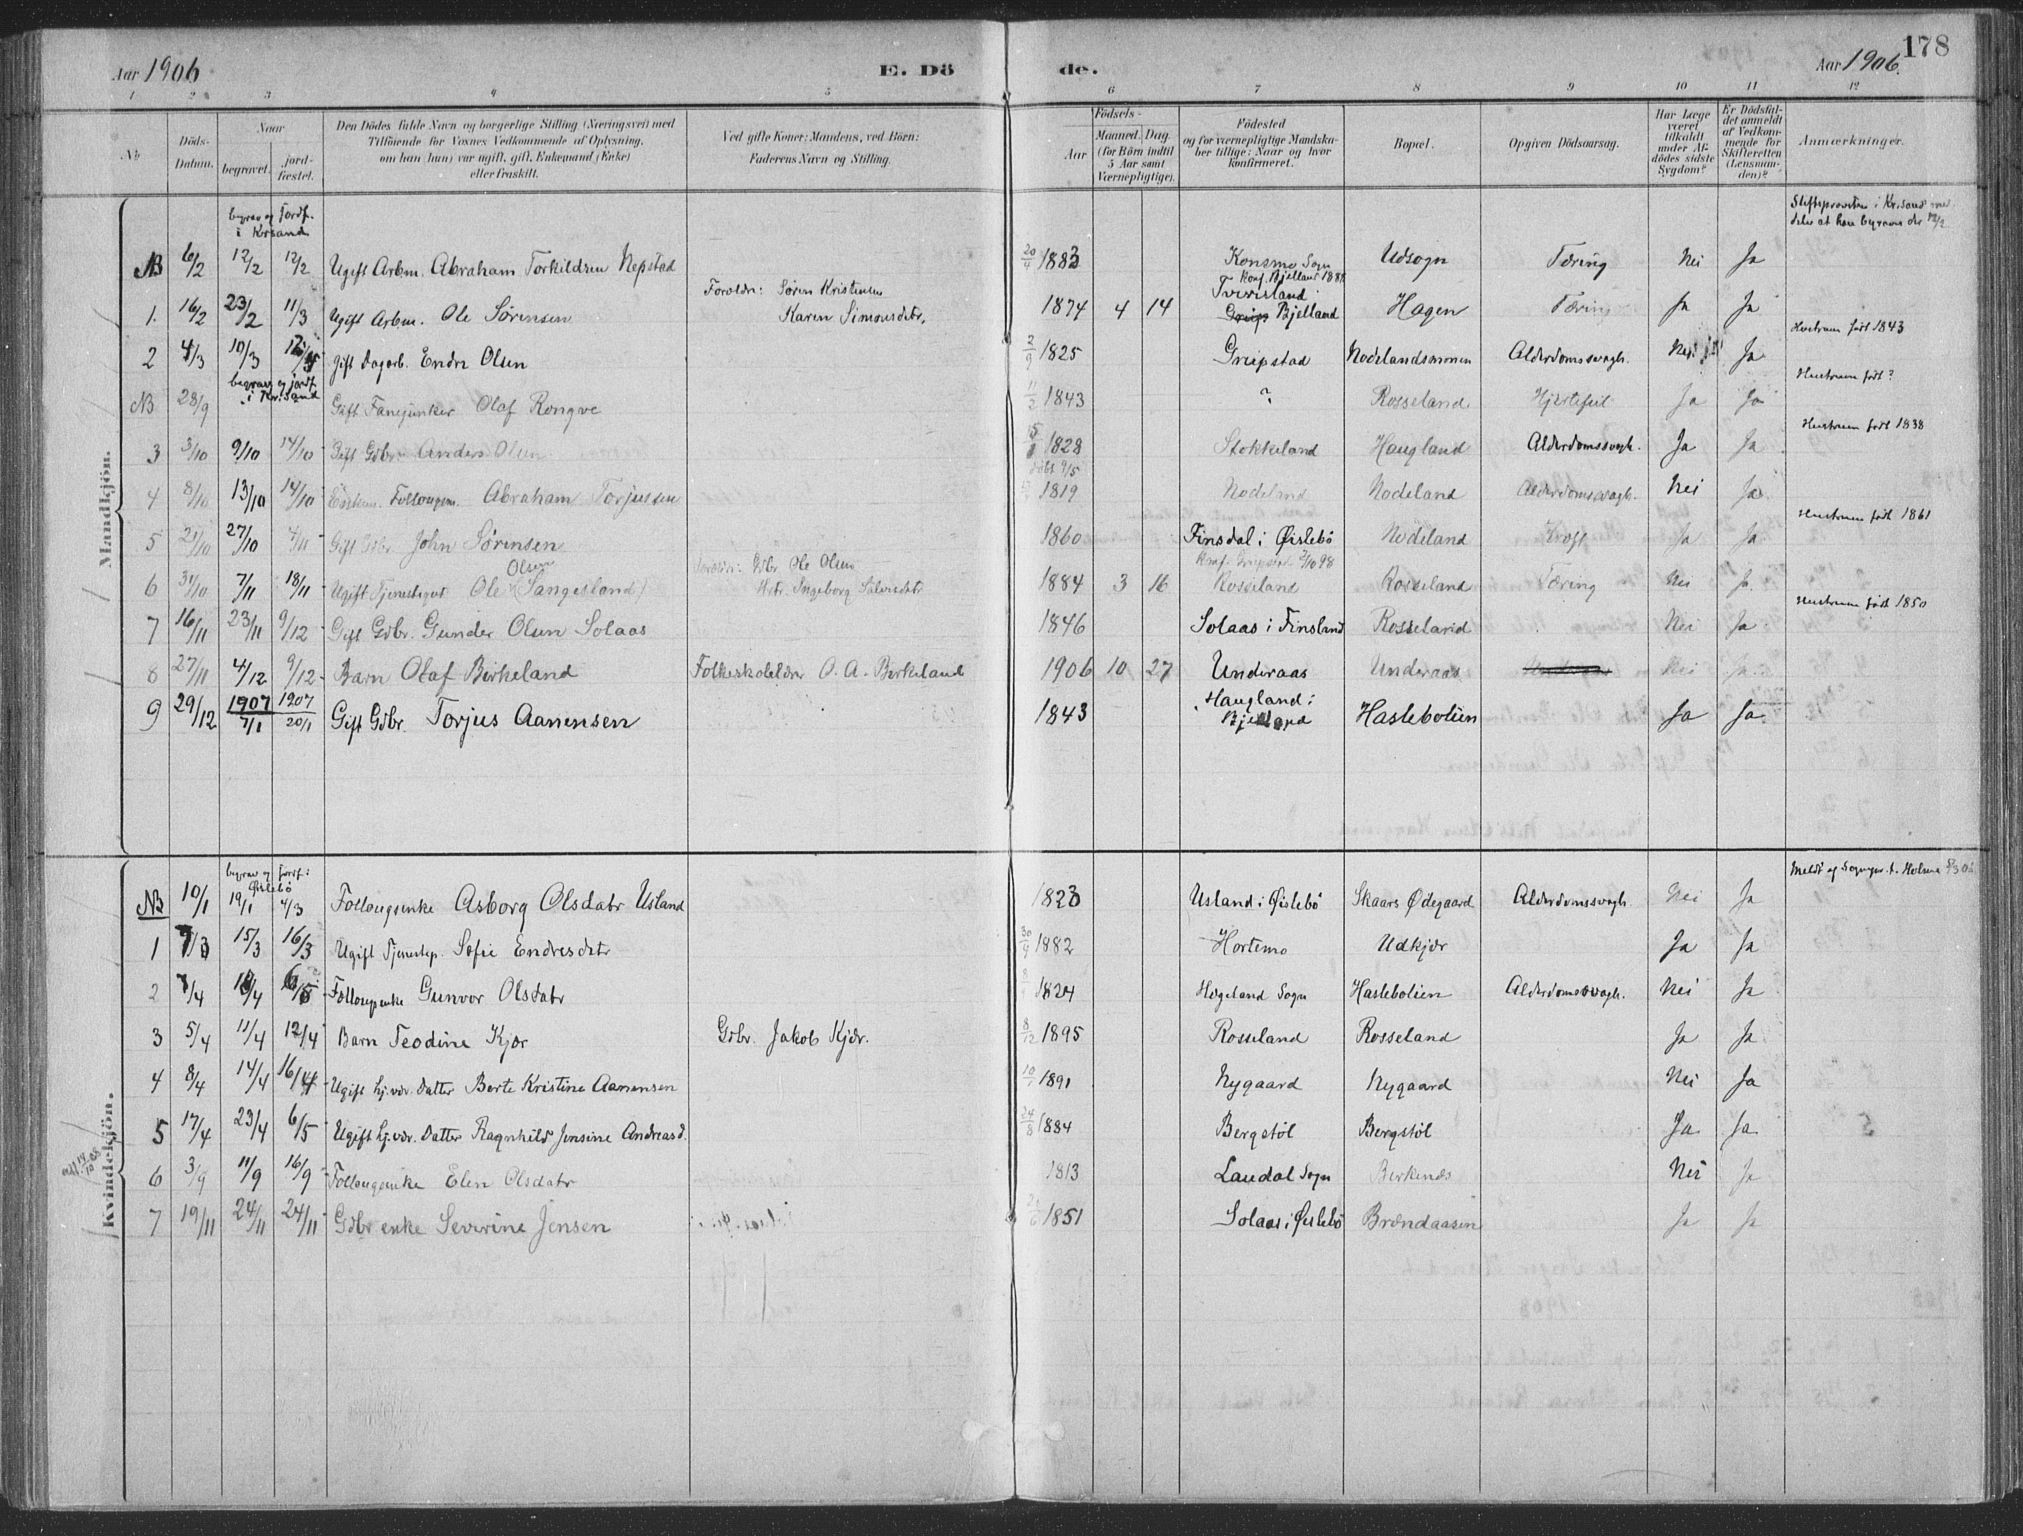 Aar 1906 E. Dö de. Aar 1906. 178
1 2 3 4 5 6 7 8 9 10 11 12
No
Döds-Datum.
Naar
begravet. jord-fæstet.
Den Dödes fulde Navn og borgerlige Stilling (Næringsvei) med
Tilföiende for Voxnes Vedkommende af Oplysning,
om han (hun) var ugift, gift, Enkemand (Enke)
eller fraskilt.
Ved gifte Koner: Mandens, ved Börn:
Faderens Navn og Stilling.
Födsels-
Aar Maaned. Dag.
(for Börn indtil
5 Aar samt
Værnepligtige).
Födested
og for værnepligtige Mandska-
ber tillige: Naar og hvor
konfirmeret.
Bopæl.
Opgiven Dödsaarsag.
Har Læge
været
tilkaldt
under Af-
dödes sidste
Sygdom?
Er Dödsfal-
det anmeldt
af Vedkom-
mende for
Skifteretten
(Lensman-
den)?
Anmærkninger.
Mandkjön.
begrav og jordf. i Krsand
Stiftsprovsten i Krisand med
deler at han begraves der 12/2
NB 6/2 12/2 12/2 Ugift Arbm. Abraham Torkildsen Nepstad 20/4 1883 Konsmo Sogn Udsogn Tæring Nei Ja
Konf. Bjelland 1888
Foreldr: Søren Kristensen
1. 16/2 23/2 11/3 Ugift Arbm. Ole Sörensen Karen Simonsdtr. 1874 4 14 Tveriland i Bjelland Hagen Tæring Ja Ja
Hustruen født 1843
2 4/3 10/3 Gift Dagarb. Endre Olsen 2/9 1825 Greipstad Nodelandsmoen Alderdomssvagh. Nei Ja
begrav og jordf. i Krisand
Hustruen født?
NB 28/9 Gift Fanejunker Olaf Rongve 11/2 1843 ? Rosseland Hjertefeil Ja Ja
Hustruen født 1838
3 3/10 9/10 14/10 Gift Gdbr. Anders Olsen 1828 Stokkeland Haugland Alderdomssvagh. Ja Ja
døbt 9/5
4 8/10 13/10 14/10 Enkem. Follougsm. Abraham Torjussen 1819 Nodeland Nodeland Alderdomssvagh. Nei Ja
Hustruen født 1861
5 21/10 27/10 4/11 Gift Gdbr John Sørensen 1860 Finsdal i Øislebö Nodeland Kræft Ja Ja
Foreldr: Gdbr. Ole Olsen
Konf. Greipstad 2/10 98
6 31/10 7/11 18/11 Ugift Tjenestegut Ole Olsen (Sangesland) Hstr. Ingeborg Salvesdtr 1884 3 16 Rosseland Rosseland Tæring Nei Ja
Hustruen født 1850
7 16/11 23/11 9/12 Gift Gdbr. Gunder Olsen Solaas 1846 Solaas i Finsland Rosseland Nei Ja
8 27/11 4/12 9/12 Barn Olaf Birkeland Folkeskolelærer O. A. Birkeland 1906 10 27 Underaas Underaas Nei Ja
9 29/12 1907 7/1 1907 20/1 Gift Gdbr. Torjus Aanensen 1843 Haugland i Bjelland Haslebolien Ja Ja
Kvindekjön.
begrav og jordf. i Øislebö
NB 10/1 19/1 4/3 Follougsenke Asborg Olsdatr Usland 1823 Usland i Øislebö Skaars Ødegaard Alderdomssvagh. Nei Ja
1 7/3 15/3 16/3 Ugift Tjenestep. Sofie Endresdtr 30/9 1882 Hortemo Udkjær Ja Ja
2 4/4 Follougsenke Gunvor Olsdatr 1824 Hegeland Sogn Haslebolien Alderdomssvagh. Nei Ja
3 5/4 11/4 12/4 Barn Teodine Kjær Gdbr. Jakob Kjær. 8/12 1895 Rosseland Rosseland Ja Ja
4 8/4 14/4 16/4 Ugift hj.vær. Datter Berte Kristine Aanensen 10/1 1891 Nygaard Nygaard Nei Ja
5 17/4 23/4 6/5 Ugift hj.vær. Datter Ragnhild Jensine Andreasd. 24/8 1884 Bergstöl Bergstöl Ja Ja
6 3/9 11/9 16/9 Follougsenke Elen Olsdatr 1813 Laudal Sogn Birkenes Nei Ja
7 19/11 24/11 24/11 Gdbr enke Severine Jensen 1851 Solaas i Øislebö Brændaasen Ja Ja